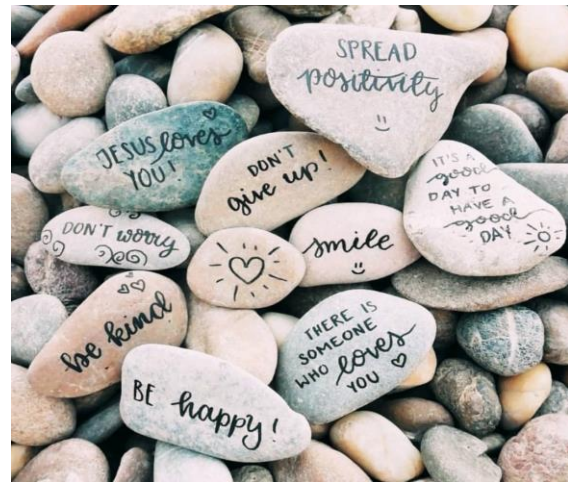 SPREAD
positivity
JESUS loves
YOU!
DON'T
give up!
IT'S A
good
DAY TO
HAVE A
good
DAY
DON'T worry
smile
be kind
THERE IS
SOMEONE
WHO loves
YOU
BE happy!